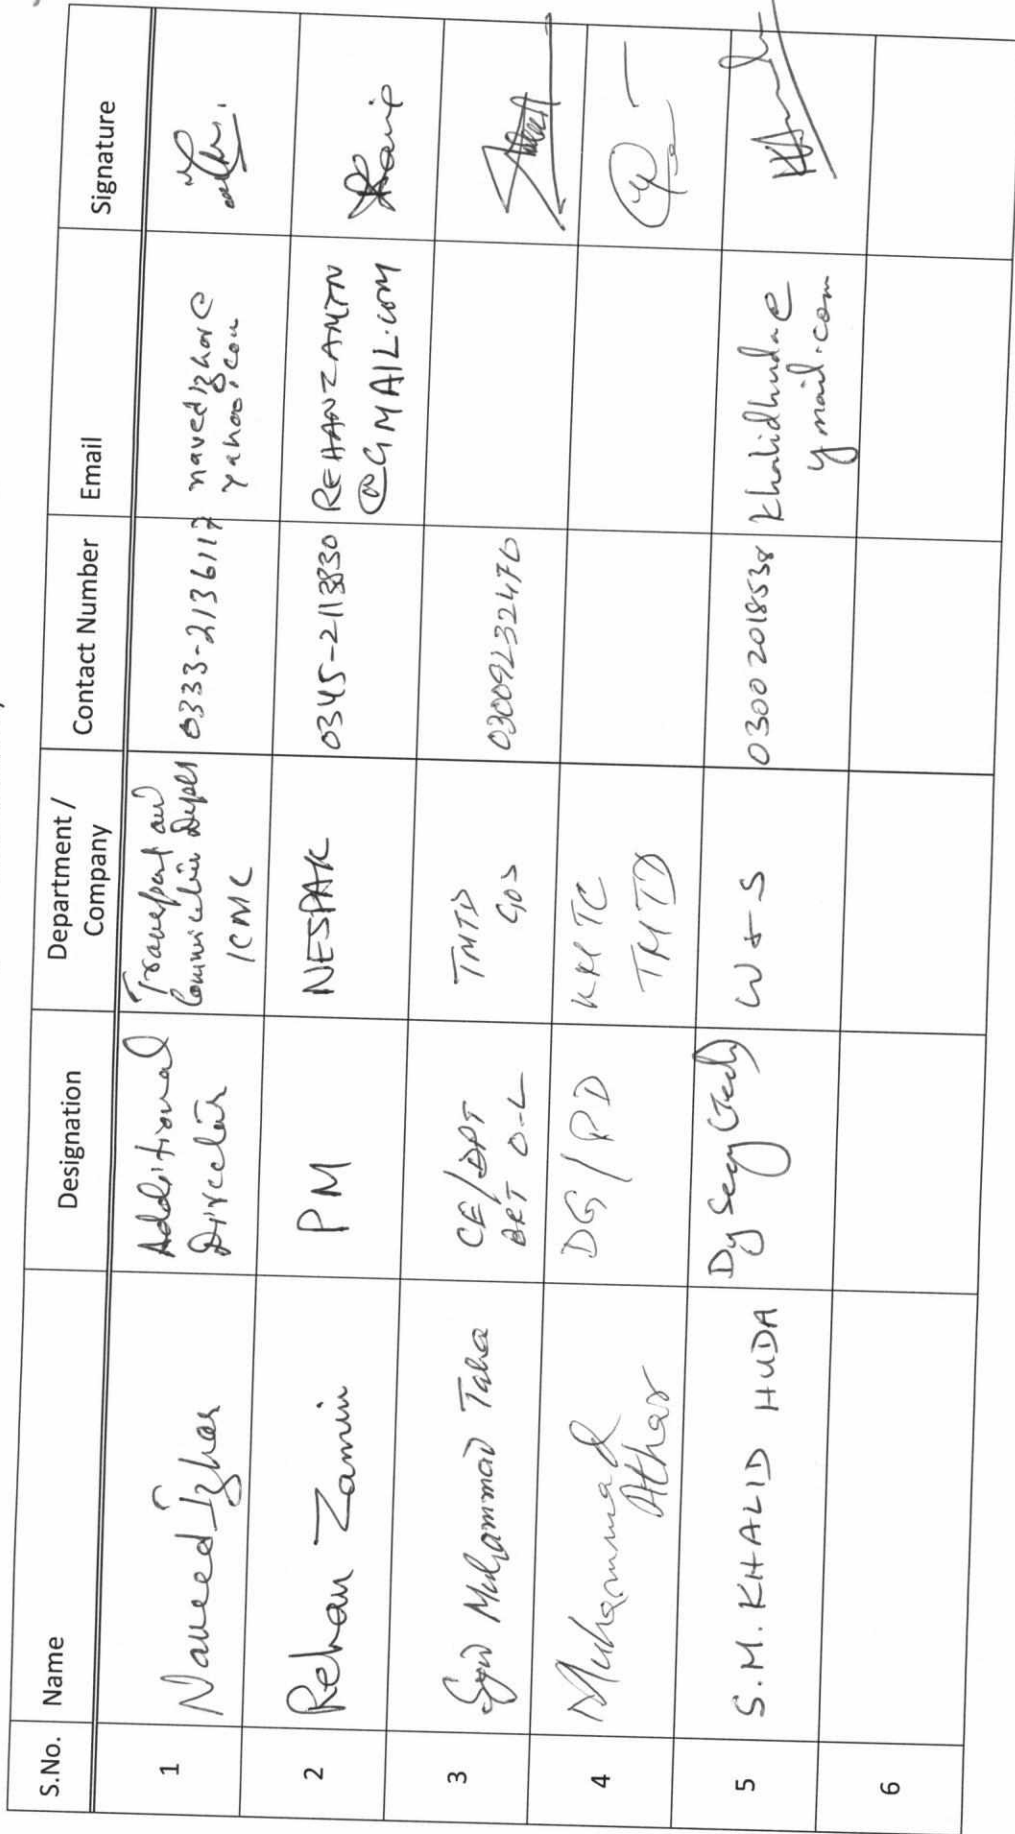 S.No. Name Designation Department / Company Contact Number Email Signature
1 Naveed Izhar Additional Director Transport and Communication Deptt KMC 0333-2136117 navedizhar@yahoo.com
2 Rehan Zamin PM NESPAK 0345-2113830 REHANZAMIN@GMAIL.COM
3 Syed Muhammad Taha CE/DPT BRT O-L TMTD GOS 03009232476
4 Muhammad Athar DG/PD KMTC TMTD
5 S.M. KHALID HUDA Dy Secy (Tech) W & S 03002018538 khalidhuda@ymail.com
6